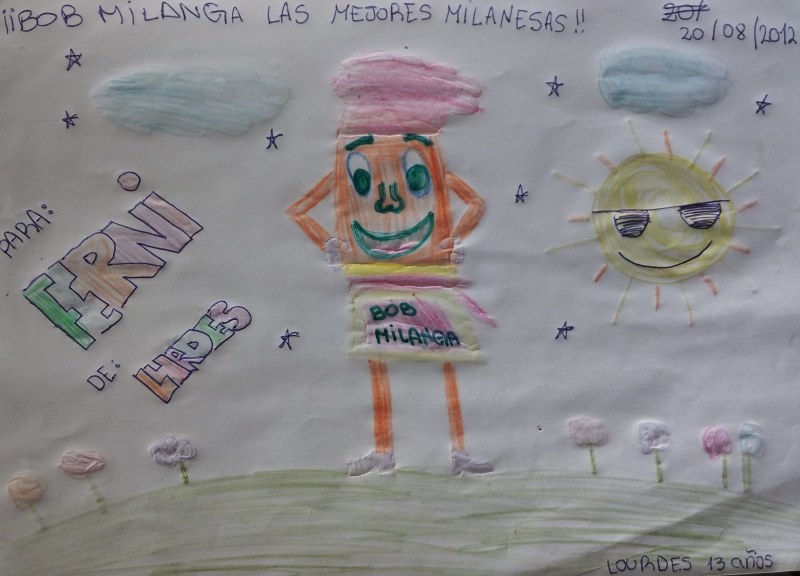 ¡¡BOB MILANGA LAS MEJORES MILANESAS!!
20/08/2012
PARA:
ERNI
DE:
BOB
MILANGA
LOURDES 13 años